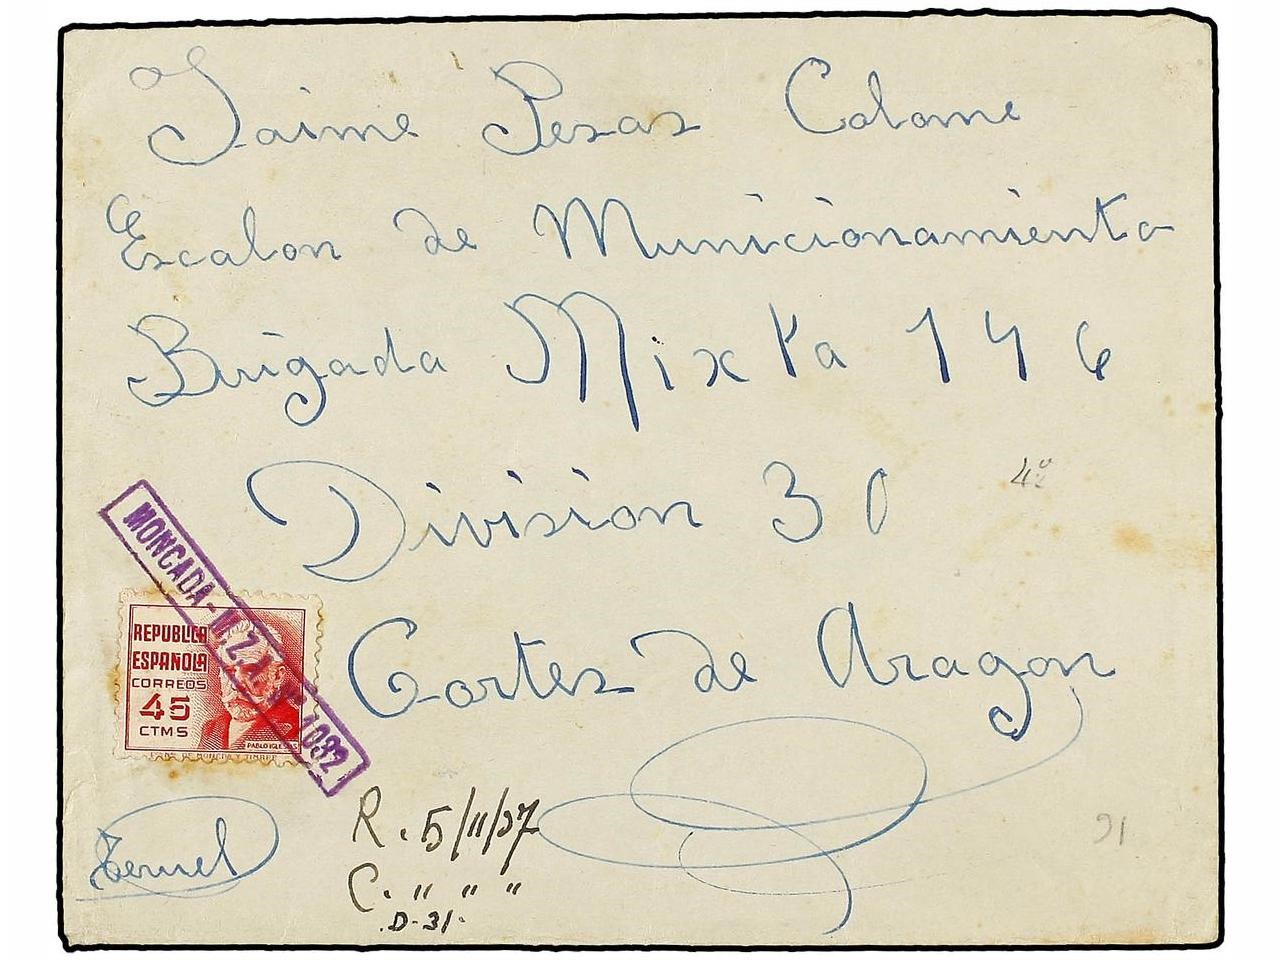 Jaime Pesas Colome
Escalon de Municionamiento
Brigada Mixta 146
Division 30
4º
Cortes de Aragon
MONCADA-M.Z.A. Nº 1082
REPUBLICA
ESPAÑOLA
CORREOS
45
CTMS
PABLO IGLESIAS
Teruel
R. 5/11/37
C. " " "
D-31-
91